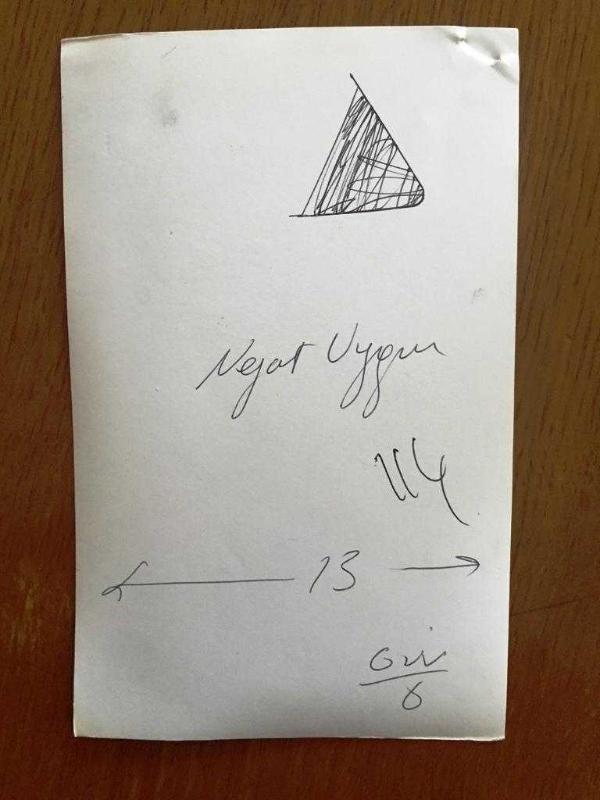 Nejat Uygur
114
13
6